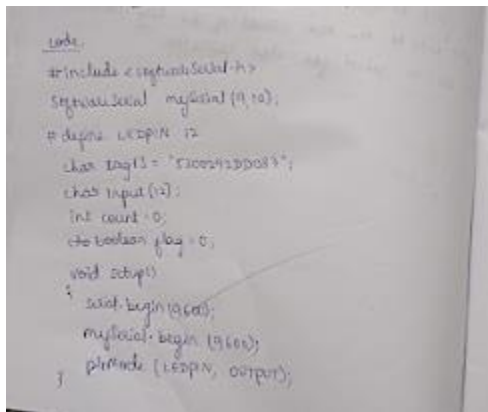 code.
#include <softwareSerial.h>
SoftwareSerial mySerial (9,10);
#define LEDPIN 12
char tag[] =
char input(12);
int count = 0;
boolean flag = 0;
void setup()
{
Serial.begin(9600);
mySerial.begin (9600);
pinMode (LEDPIN, OUTPUT);
}